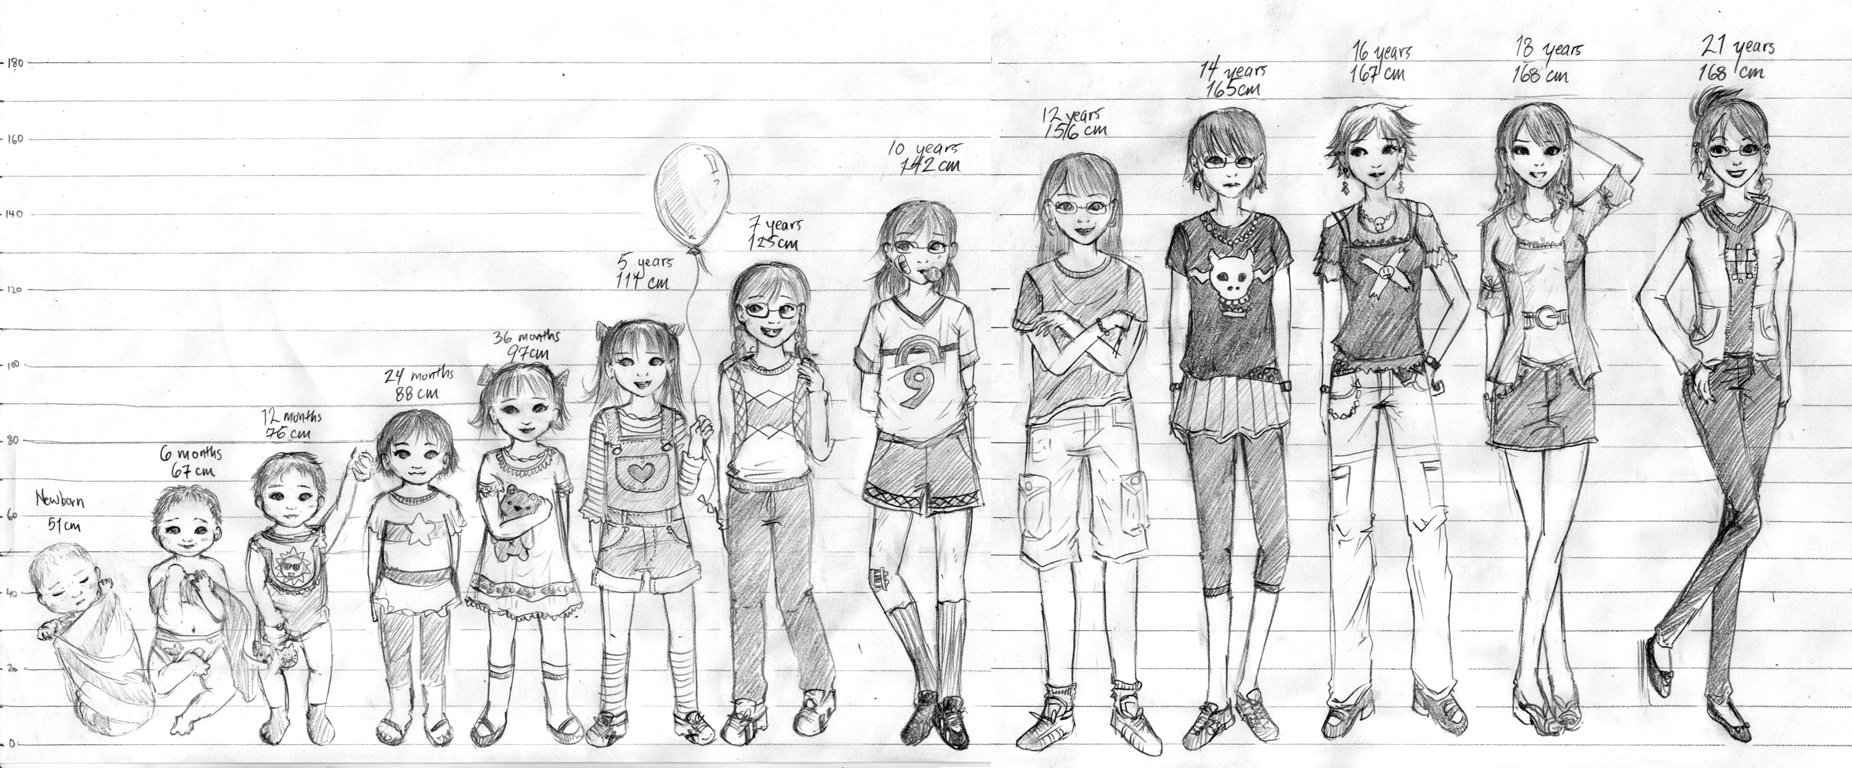 180
160
140
120
100
80
60
40
20
0
Newborn
51cm
6 months
67cm
12 months
76 cm
24 months
88 cm
36 months
97cm
5 years
cm
7 years
125cm
10 years
142cm
9
12 years
156 cm
14 years
165cm
16 years
167 cm
18 years
168 cm
21 years
168 cm